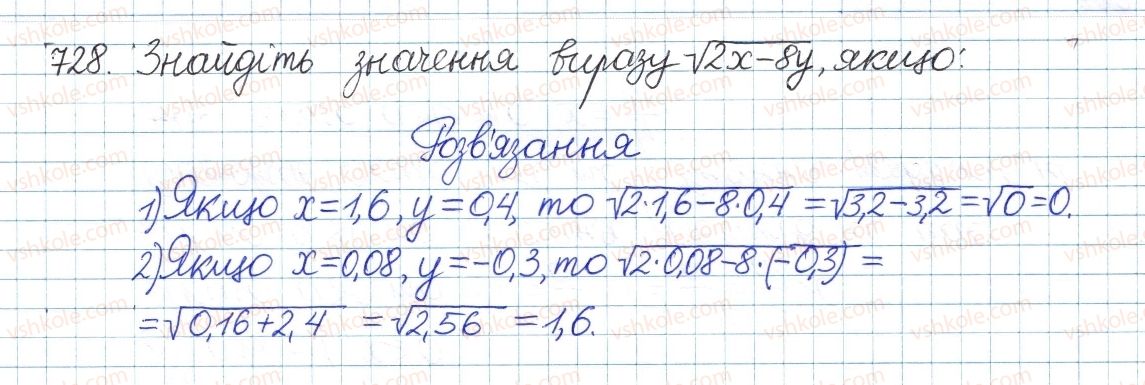 728. Знайдіть значення виразу √2x-8y, якщо:
Розв'язання
1) Якщо x=1,6, y=0,4, то √2·1,6-8·0,4 = √3,2-3,2 = √0 = 0.
2) Якщо x=0,08, y=-0,3, то √2·0,08-8·(-0,3) =
= √0,16+2,4 = √2,56 = 1,6.